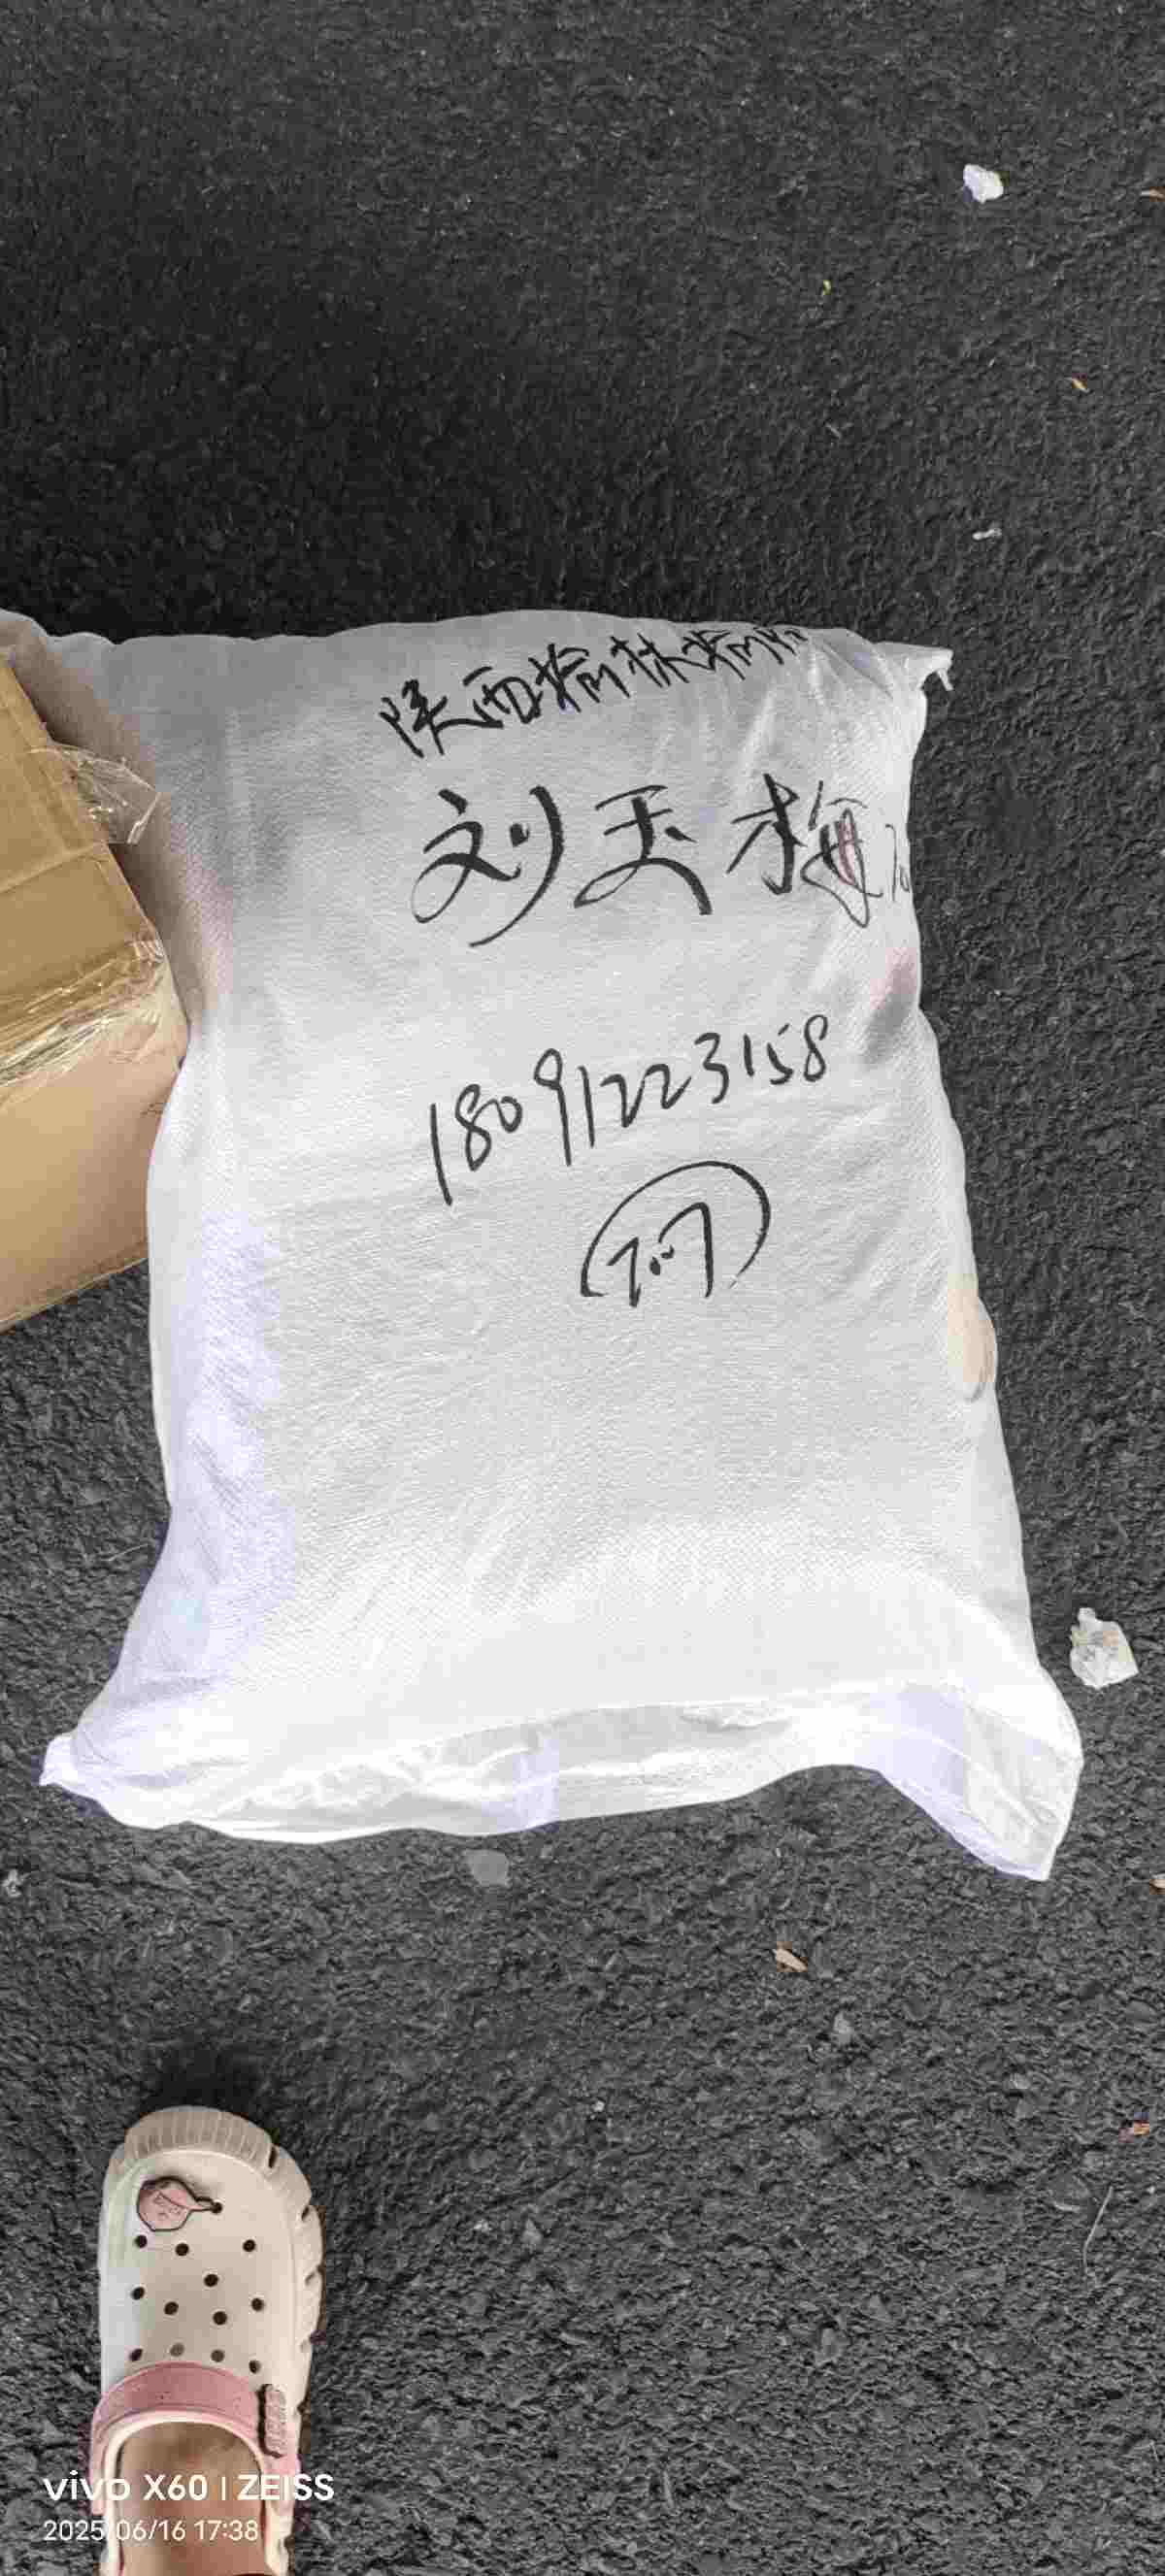 陕西榆林榆阳
刘玉梅
18091223158
vivo X60 | ZEISS
2025/06/16 17:38